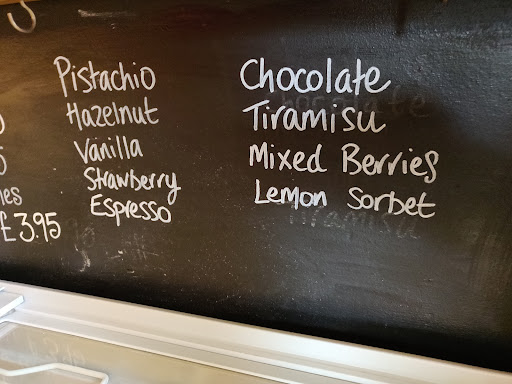 Pistachio
Hazelnut
Vanilla
Strawberry
Espresso
£3.95
Chocolate
Tiramisu
Mixed Berries
Lemon Sorbet